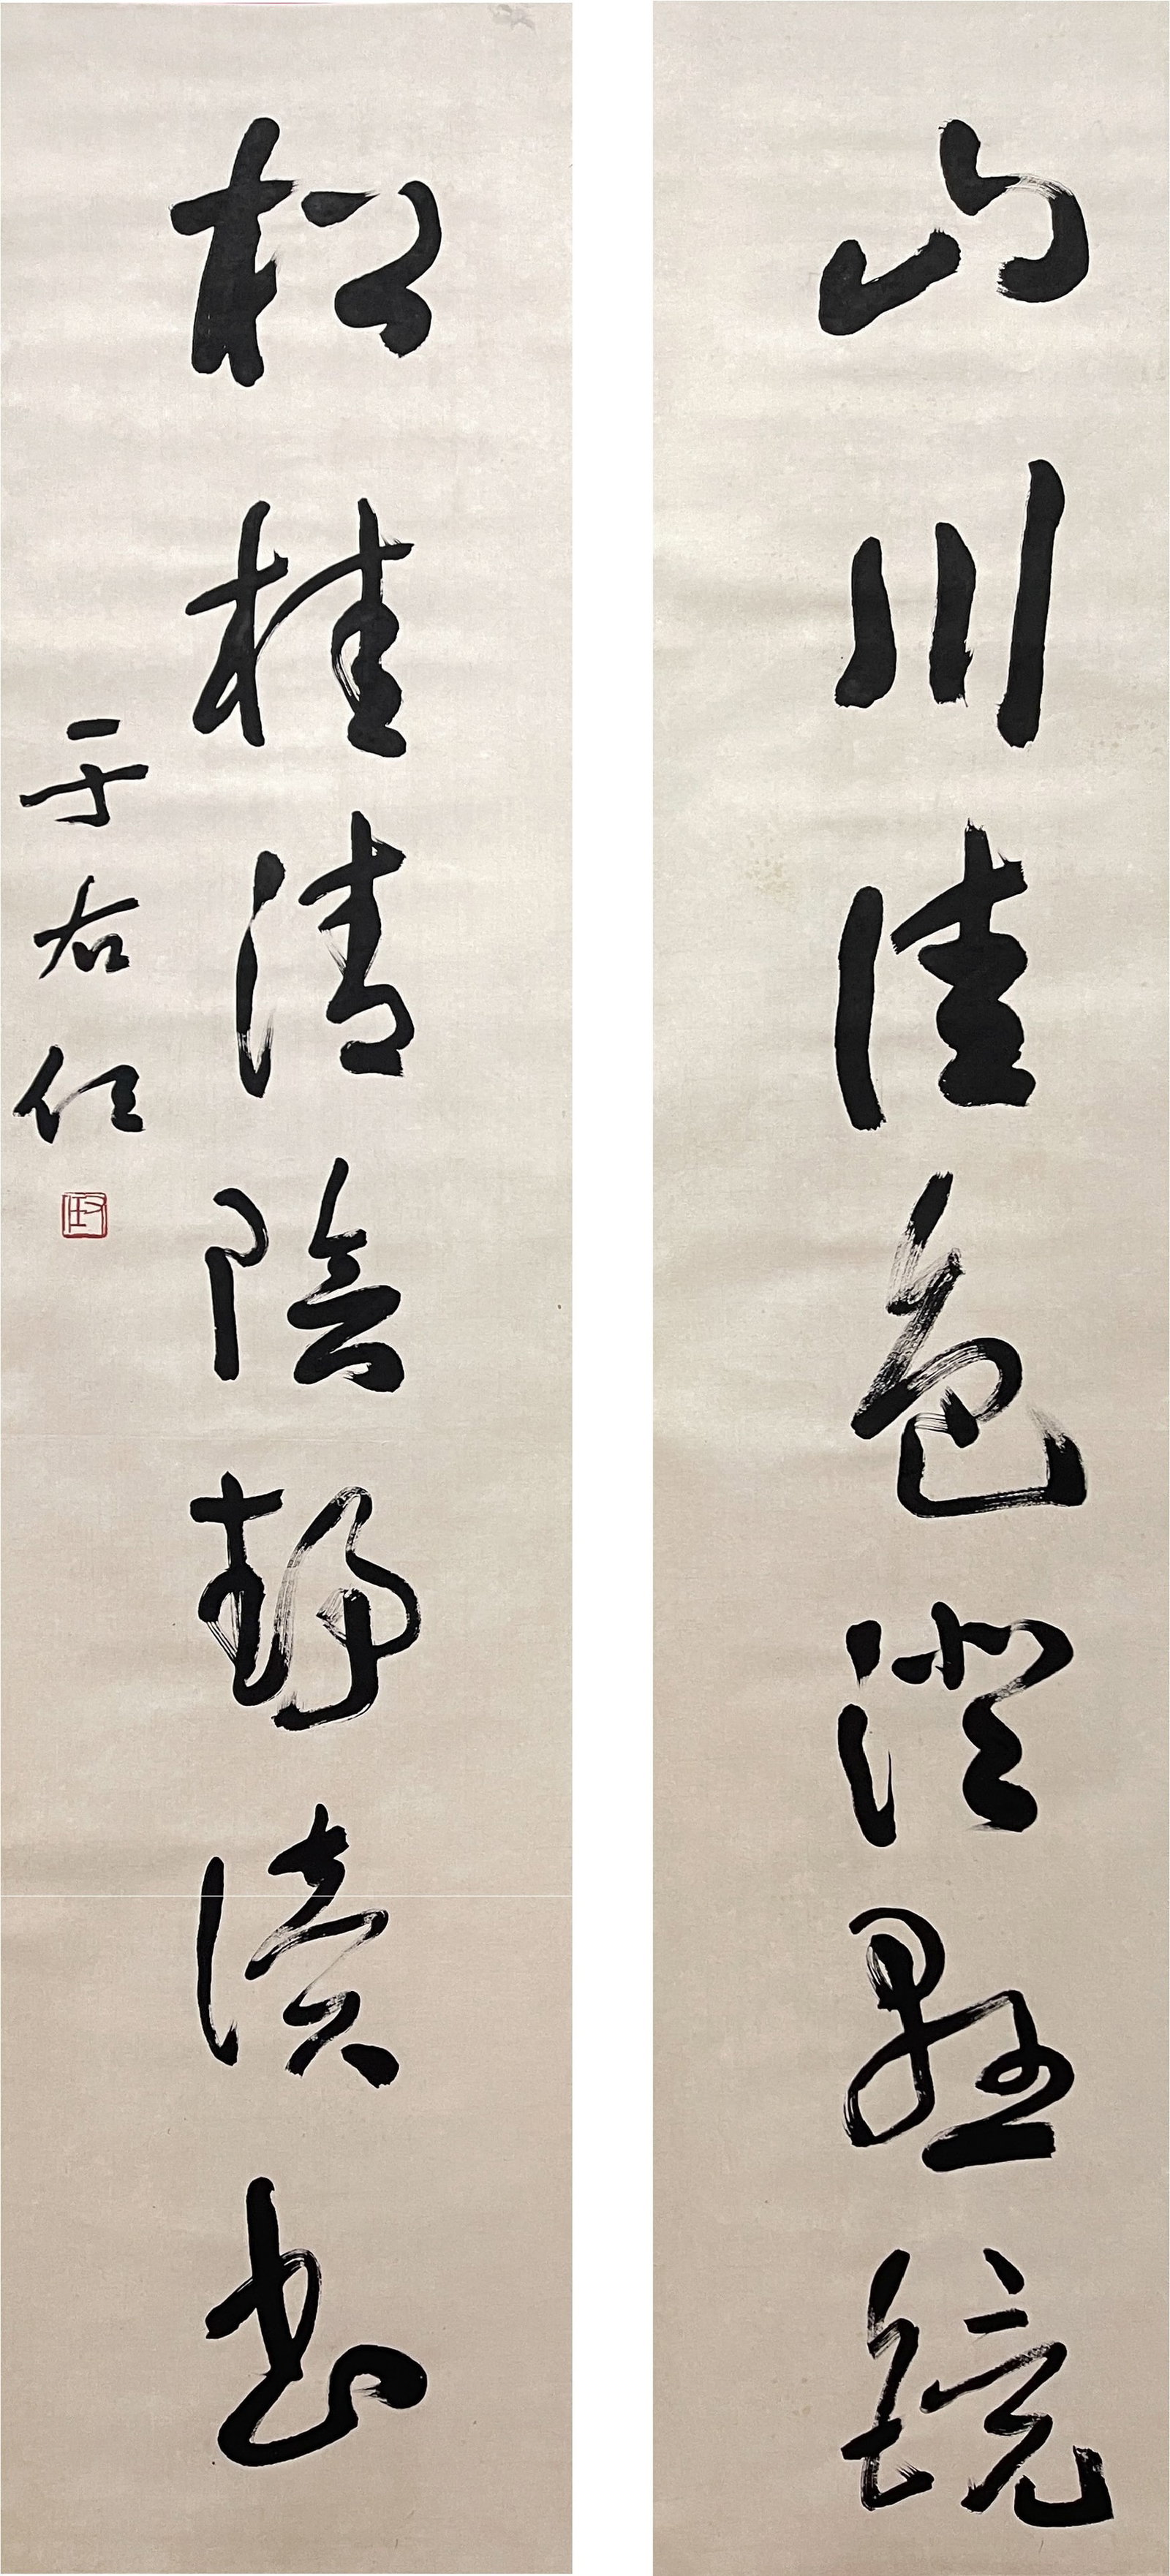 山川佳色澄懸鏡
松桂清陰靜讀書
于右任